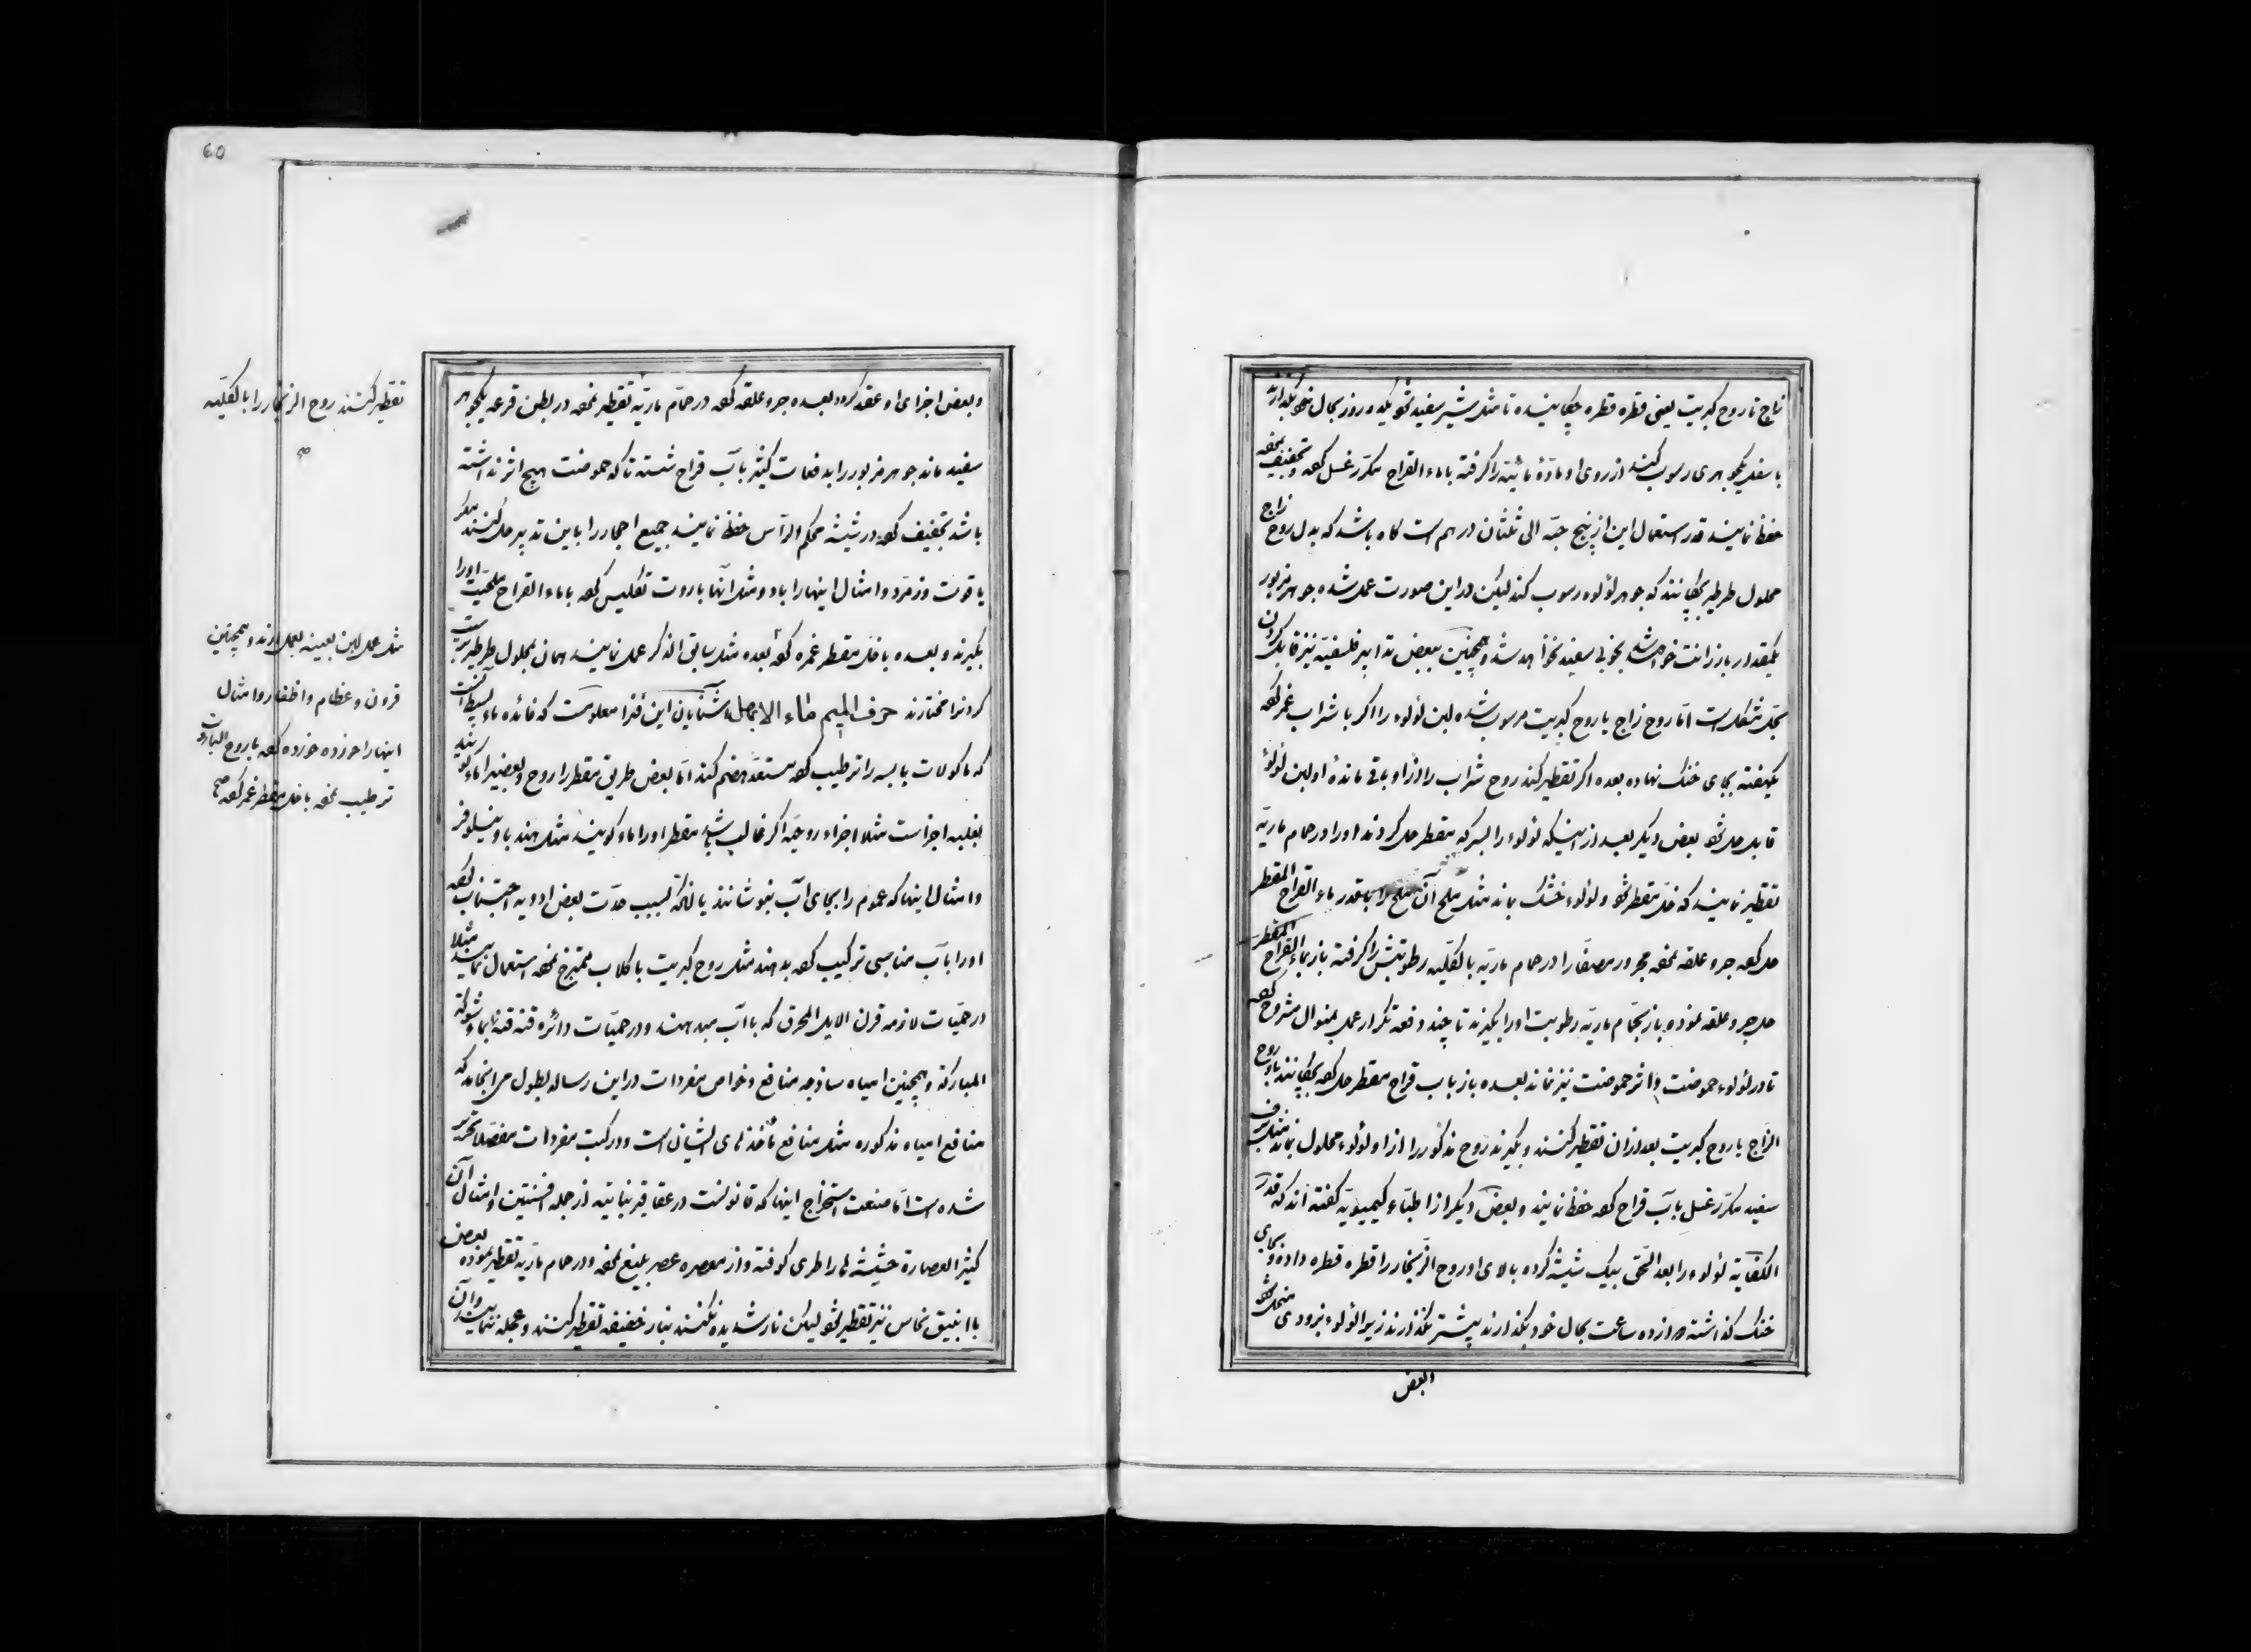 زاج تا روح کبریت یعنی قطره قطره چکانیده تا مثل شیر سفید شود یکدو روز بحال خود بگذارند
با سفید یکجوهری رسوب کند از روی او مادّهٔ مائیّه را گرفته با ماء القراح مکرّر غسل کرده و تجفیف نموده
حفظ نمایند قدر استعمال این از پنج حبّه الی ثلثان درهم است کاه باشد که بدل روح زاج
محلول طرطیر بچکانند که جوهر لؤلوء رسوب کند لیکن در این صورت عمل شده جوهر مزبور
بمقدار بازرانت خواهد شد بخوبی سفید نخواهد شد و همچنین ببعض تدابیر فلسفیّه نیز قابل کردن
بحل مشکل است امّا روح زاج یا روح کبریت مرسوب شده لبن لؤلوء را اکر با شراب غمر کرده
یکهفته بجای خنک نهاده بعده اکر تقطیر کند روح شراب را و از او باقی ماندهٔ او لبن لؤلؤ
قابل حل شود بعض دیکر بعد از اینکه لؤلوء را بسرکه مقطر حل کردند او را در حمام ماریّه
تقطیر نمایند که خلّ مقطر شود و لؤلوء خشک بماند مثل ملح آن ملح را بقدر ماء القراح المقطر
حل کرده جرو علقه نموده مجرور مصفّا را در حمام ماریّه بالقلیّه رطوبتش را کرفته باز بماء القراح المقطر
حل جر و علقه نموده باز بحمّام ماریّه رطوبت او را بکیرند تا چند دفعه تکرار عمل بمنوال مشروح کرده
تا در لؤلوء حموضت و اثر حموضت نیز نماند بعده باز باب قراح مقطر حل کرده بچکانند با روح
الزّاج یا روح کبریت بعد از ان تقطیر کنند و بکیرند روح مذکور را از او لؤلوء محلول بماند مثل برف
سفید مکرّر غسل بآب قراح کرده حفظ نمایند و بعض دیکر از اطبّاء کیمیویّه کفته اند که قدر
الکفایة لؤلوء را بعد السّحق بیک شیشه کرده بالای او روح الزّنجار را قطره قطره داده و بجای
خنک کذاشته دوازده ساعت بحال خود بکذارند پیشتر نکذارند زیرا لؤلوء بزودی منحل شود
وبعض
60
و بعض اجزای او عقد کرد بعده جرو علقه کرده در حمّام ماریّه تقطیر نموده در بطن قرعه یکجوهر
سفید ماند جوهر مزبور را بدفعات کثیر بآب قراح شسته تا که حموضت هیچ اثر نداشته
باشد تجفیف کرده در شیشه محکم الرّأس حفظ نمایند جمیع احجار را باین تدبیر حل کنند مکر
یاقوت و زمرّد و امثال اینها را بارود و مثل آنها باروت تکلیس کرده با ماء القراح ملحیّت او را
بکیرند و بعده با خل مقطر غمره کرده بعده مثل سابق الذکر عمل نمایند همان بمحلول طرطیر
کردنرا مختارند حرف المیم ماء الاجمال شنایان این فنرا معلومست که فائده ماء بسیط آنست
که ماکولات یابسه را ترطیب کرده مستعدّ هضم کند امّا بعض طریق مقطر را روح و بعضیرا ماء کویند
بغلبه اجزاست مثلا اجزاء روحیّه اکر غالب باشد مقطر او را ماء کویند مثل هندبا و نیلوفر
و امثال اینها که عموم را بجای آب بنوشانند یا انکه بسبب حدّت بعض ادویه اجتناب کرده
او را بآب مناسبی ترکیب کرده بدهند مثل روح کبریت با کلاب ممتزج نموده استعمال نمایند مثلا
در حمّیات لازمه قرن الایل المحرق که باآب میدهند و در حمیّات دائره قنه قنه بماء شوکة
المبارکة و همچنین امیاه ساذجه منافع و خواص مفردات در این رساله بطول می انجامد که
منافع امیاه مذکوره مثل منافع مأخذ مای ایشان است و در کتب مفردات مفصّلا تحریر
شده است امّا صنعت استخراج اینها که قانونست در عقاقیر نباتیه از جمله افسنتین و امثال آن
کثیر العصارة حشیشه ها را طری کوفته و از معصره عصر بلیغ نموده و در حمام ماریّه تقطیر نموده بعض
با انبیق نحاس نیز تقطیر شود لیکن نار شدیده نکنند بنار خفیفه تقطیر کنند و عجله ننمایند و آن
تقطیر کنند روح الزنجار را بالقلیّه
صح
مثل عمل لبن بعینه بعمل ارند و همچنین
قرون و عظام و اظفار و امثال
اینها را خورده خورده کرده با روح البارود
ترطیب نموده با خل مقطر غمر کرده صح